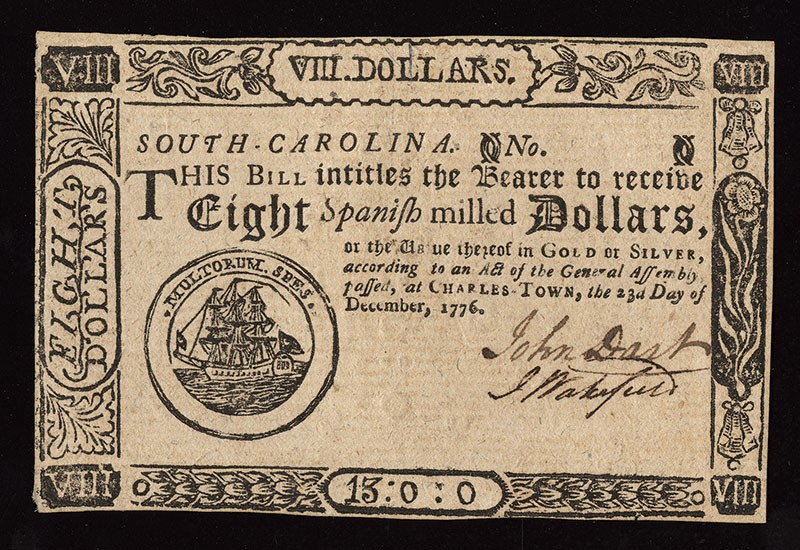 VIII
VIII. DOLLARS.
VIII
SOUTH-CAROLINA. No.
THIS BILL intitles the Bearer to receive
Eight Spaniſh milled Dollars,
or the Value thereof in GOLD or SILVER,
according to an Act of the General Aſſembly
paſſed, at CHARLES-TOWN, the 23d Day of
December, 1776.
EIGHT
DOLLARS
MULTORUM. SPES.
John Dart
J Wakefield
VIII
13:0:0
VIII